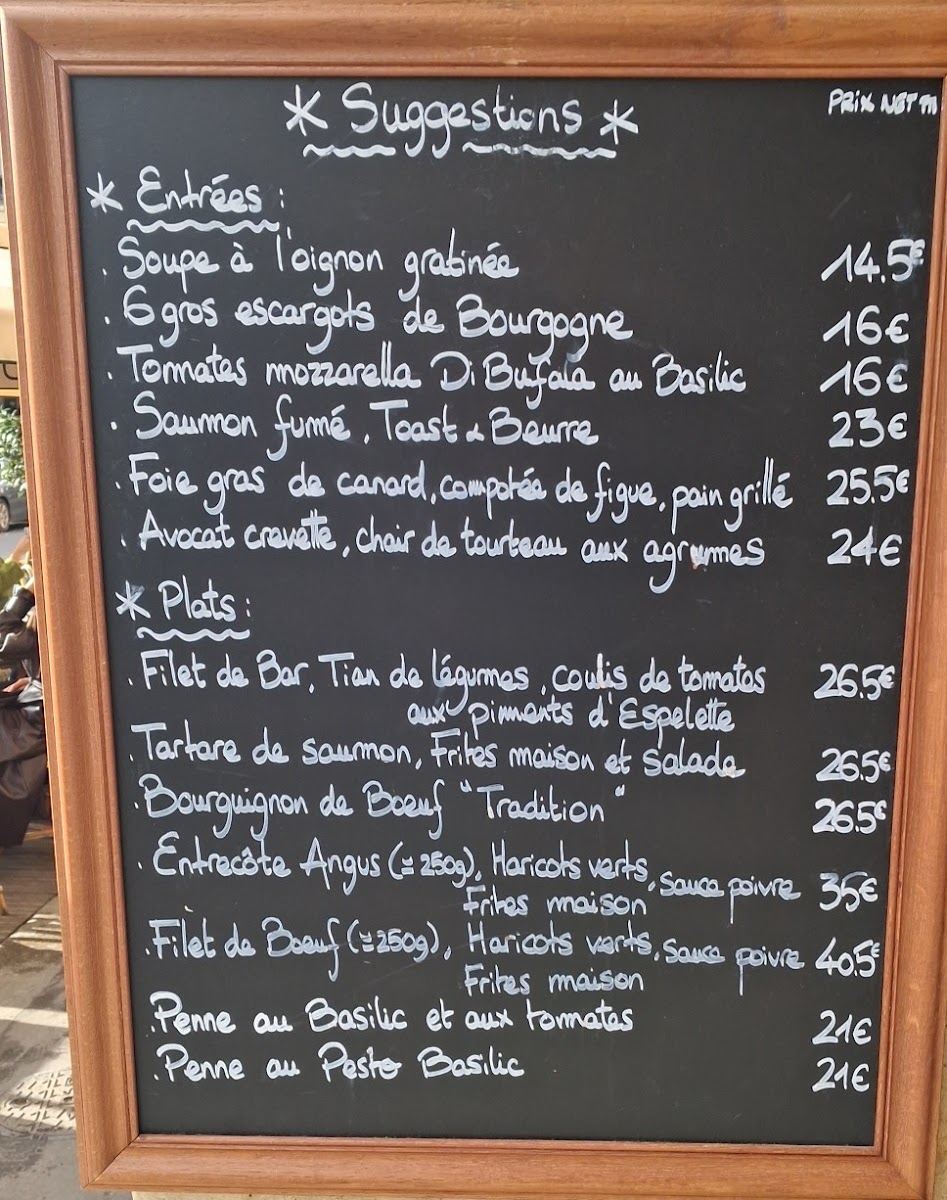 * Suggestions *
PRIX NET
* Entrées :
. Soupe à l'oignon gratinée 14.5€
. 6 gros escargots de Bourgogne 16€
. Tomates mozzarella Di Bufala au Basilic 16€
. Saumon fumé, Toast & Beurre 23€
. Foie gras de canard, compotée de figue, pain grillé 25.5€
. Avocat crevette, chair de tourteau aux agrumes 24€
* Plats :
. Filet de Bar, Tian de légumes, coulis de tomates 26.5€
aux piments d'Espelette
. Tartare de saumon, Frites maison et Salade 26.5€
. Bourguignon de Boeuf "Tradition" 26.5€
. Entrecôte Angus (≃ 250g), Haricots verts, Sauce poivre 35€
Frites maison
. Filet de Boeuf (≃ 250g), Haricots verts, Sauce poivre 40.5€
Frites maison
. Penne au Basilic et aux tomates 21€
. Penne au Pesto Basilic 21€